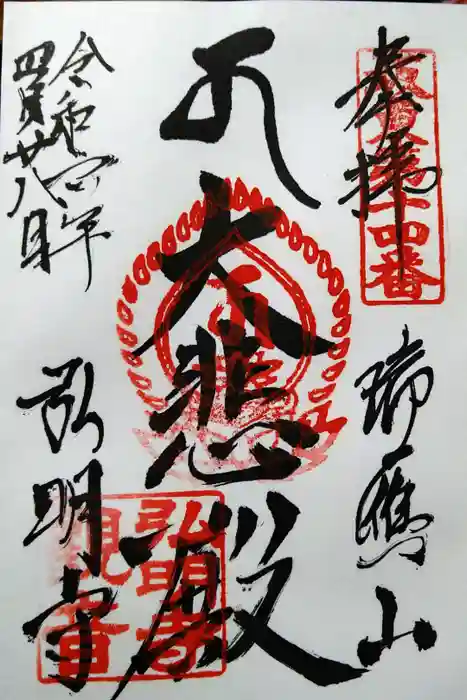 奉拝
坂東第十四番
瑞應山
大悲殿
弘明寺
弘明寺
観音
令和四年
四月廿八日